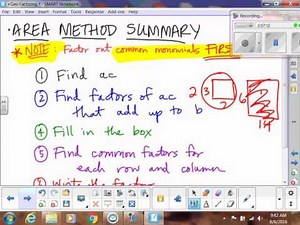 Geo Factoring 7 - SMART Notebook
• AREA METHOD SUMMARY
* NOTE: Factor out common monomials FIRST
① Find ac
② Find factors of ac
that add up to b
④ Fill in the box
⑤ Find common factors for
each row and column
Write the
2 3 2 6
14
9:42 AM
8/6/2016